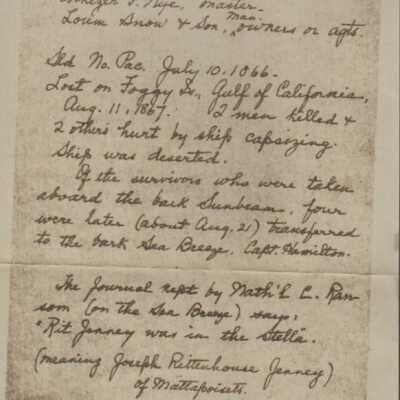 Ebenezer F. Nye, master.
Louim Snow & Son, man. owners or agts.
Sld No. Pac. July 10, 1866.
Lost on Foggy Is., Gulf of California,
Aug. 11, 1867. 2 men killed &
2 others hurt by ship capsizing.
Ship was deserted.
Of the survivors who were taken
aboard the bark Sunbeam, four
were later (about Aug. 21) transferred
to the bark Sea Breeze, Capt. Hamilton.
The Journal kept by Nath'l C. Ran-
som (on the Sea Breeze) says:
"Rit Jenney was in the Stella".
(meaning Joseph Rittenhouse Jenney)
of Mattapoisett.